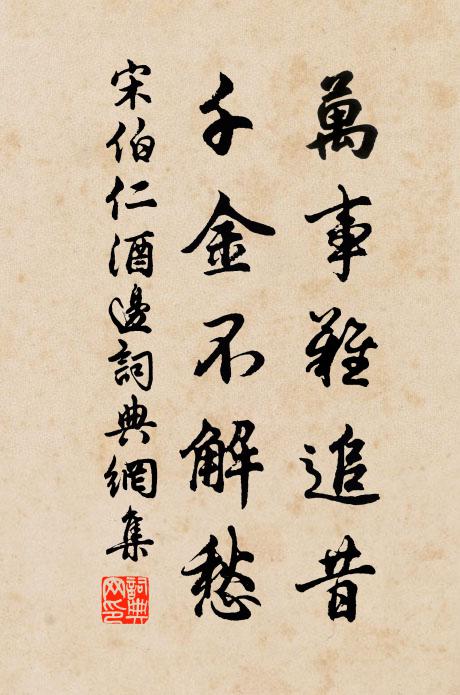 萬事難追昔
千金不解愁
宋伯仁酒邊詞典網集
詞典网印